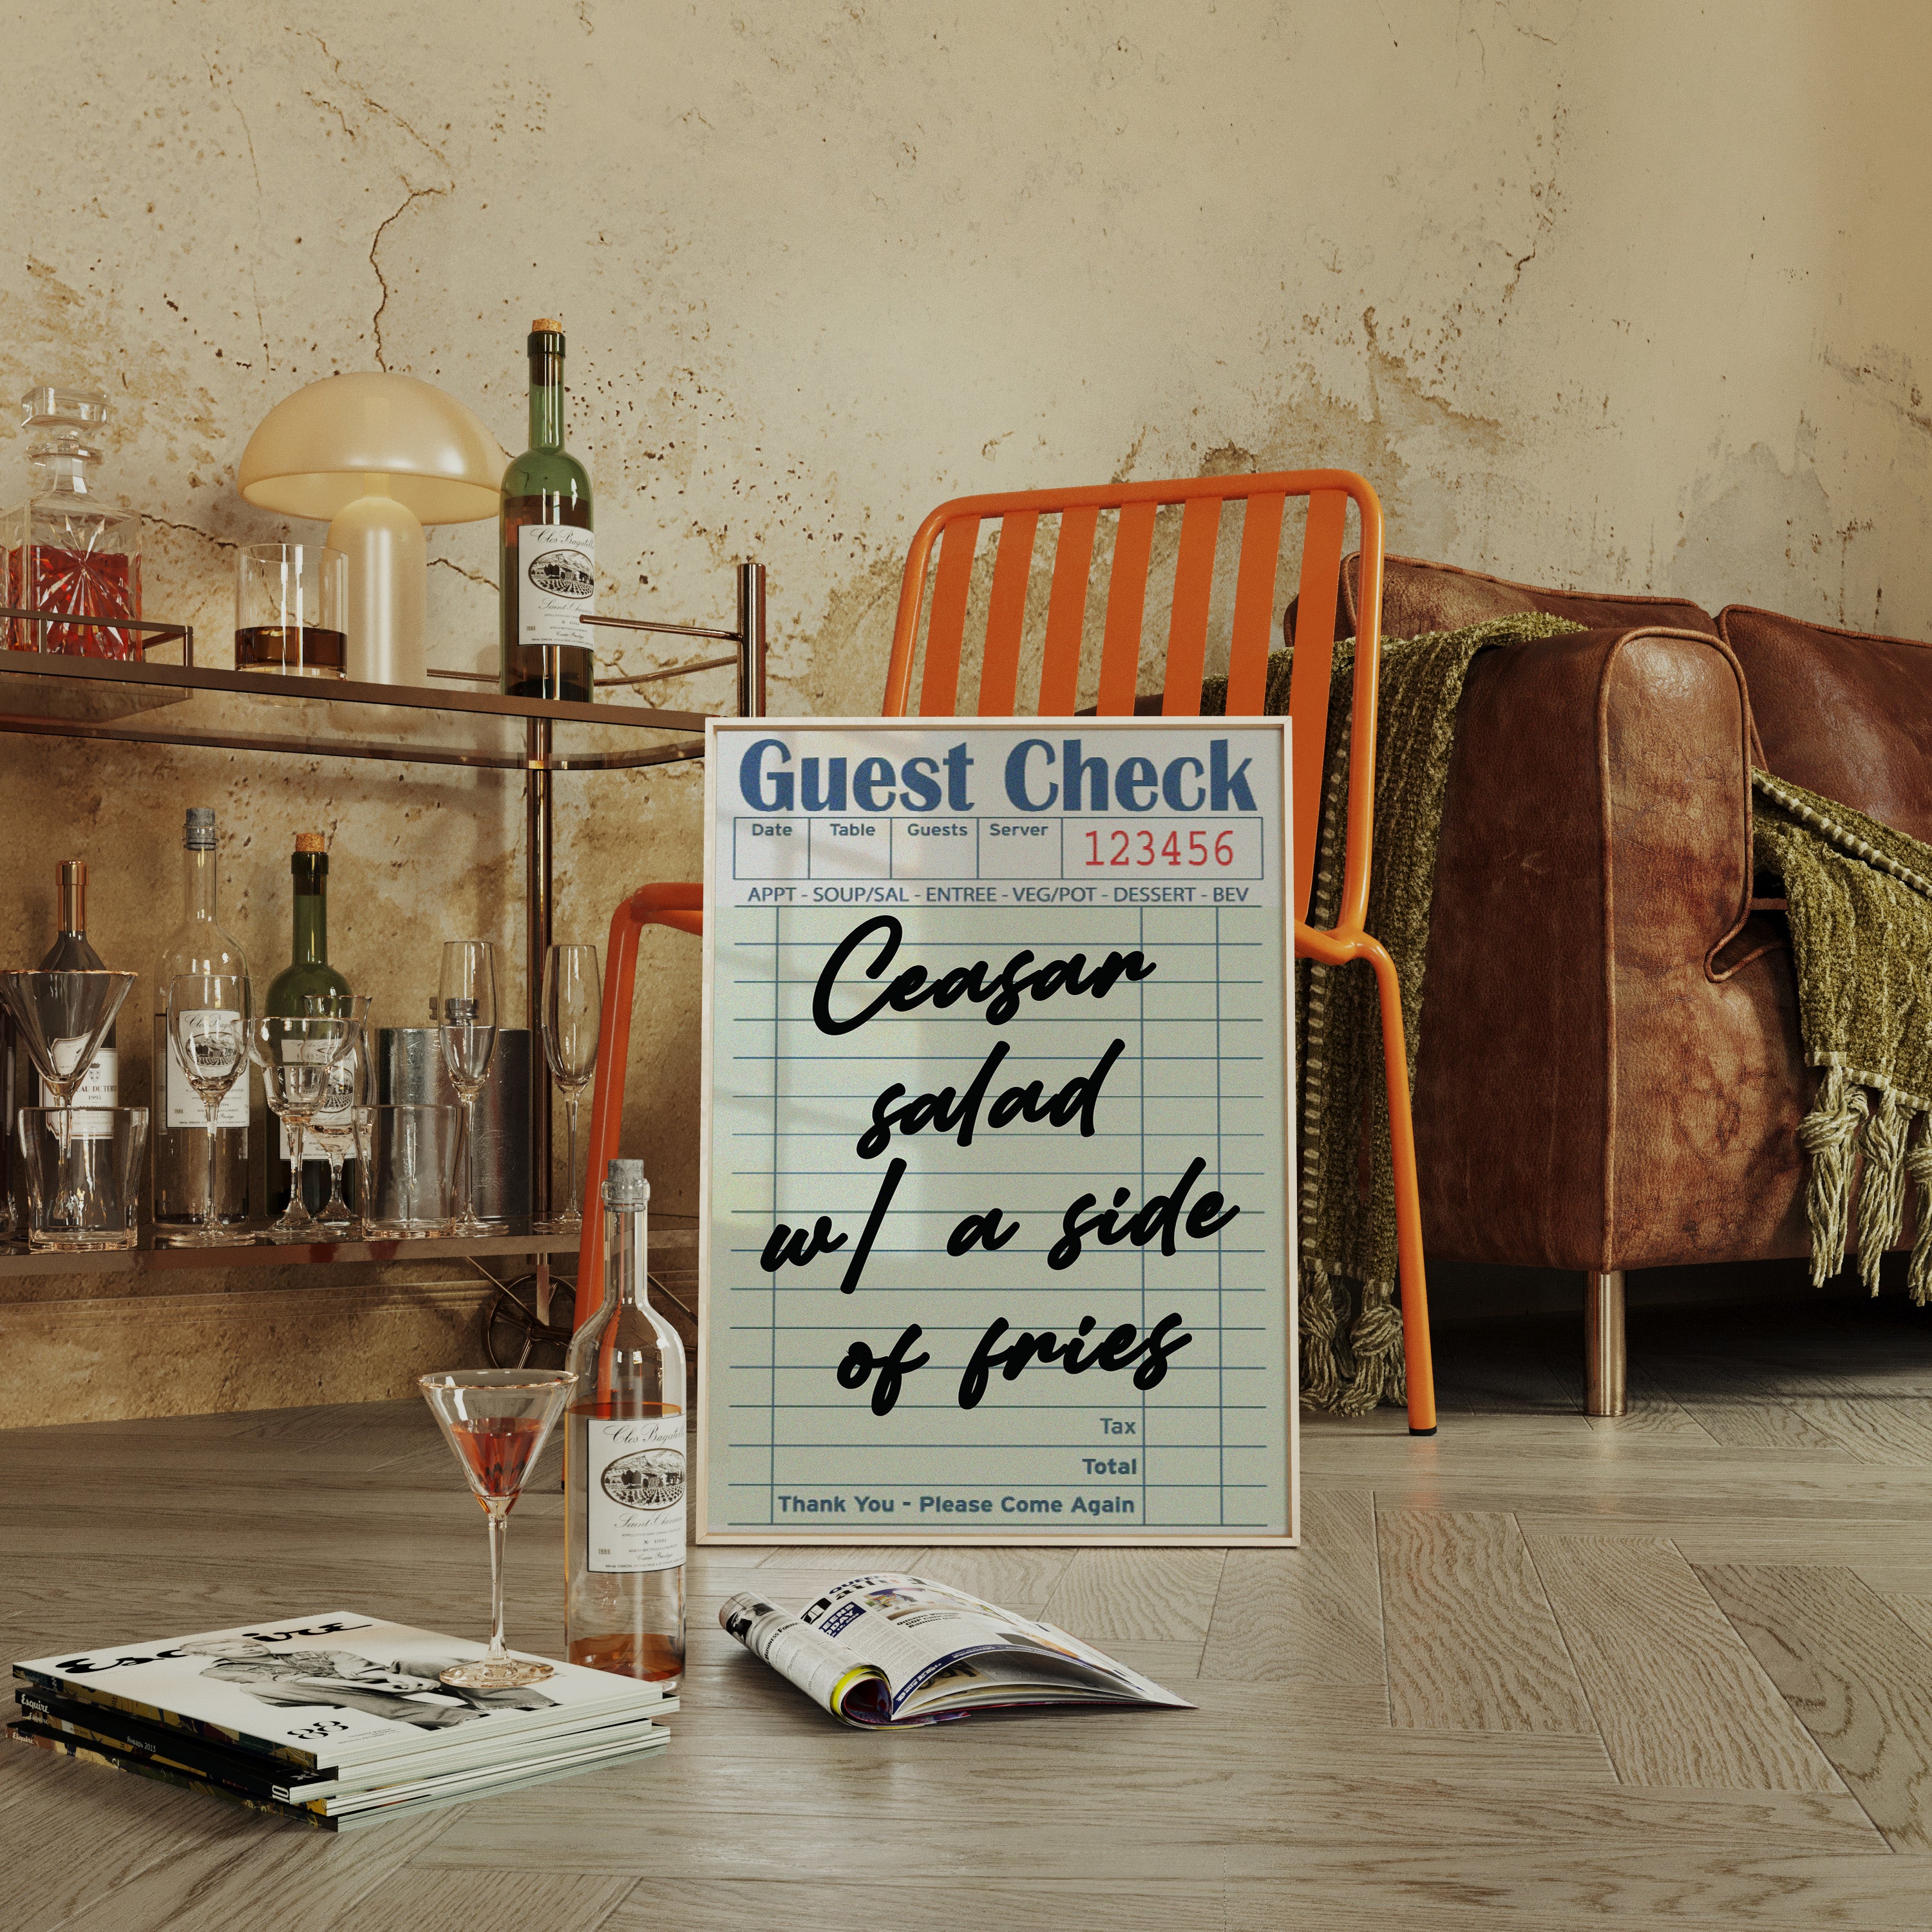 Guest Check
Date Table Guests Server 123456
APPT - SOUP/SAL - ENTREE - VEG/POT - DESSERT - BEV
Ceasar
salad
w/ a side
of fries
Tax
Total
Thank You - Please Come Again
Clos Bagatelle
Saint Chinian
1995
Clos Bagatelle
Saint Chinian
Esquire
88
Esquire
Январь 2013
Esquire